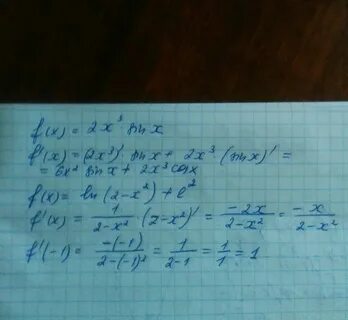 f(x) = 2x³ · sin x
f'(x) = (2x³)' · sin x + 2x³ · (sin x)' =
= 6x² sin x + 2x³ cos x
f(x) = ln(2-x²) + e²
f'(x) = 1/(2-x²) · (2-x²)' = -2x/(2-x²) = -x/(2-x²)
f'(-1) = -(-1)/(2-(-1)²) = 1/(2-1) = 1/1 = 1